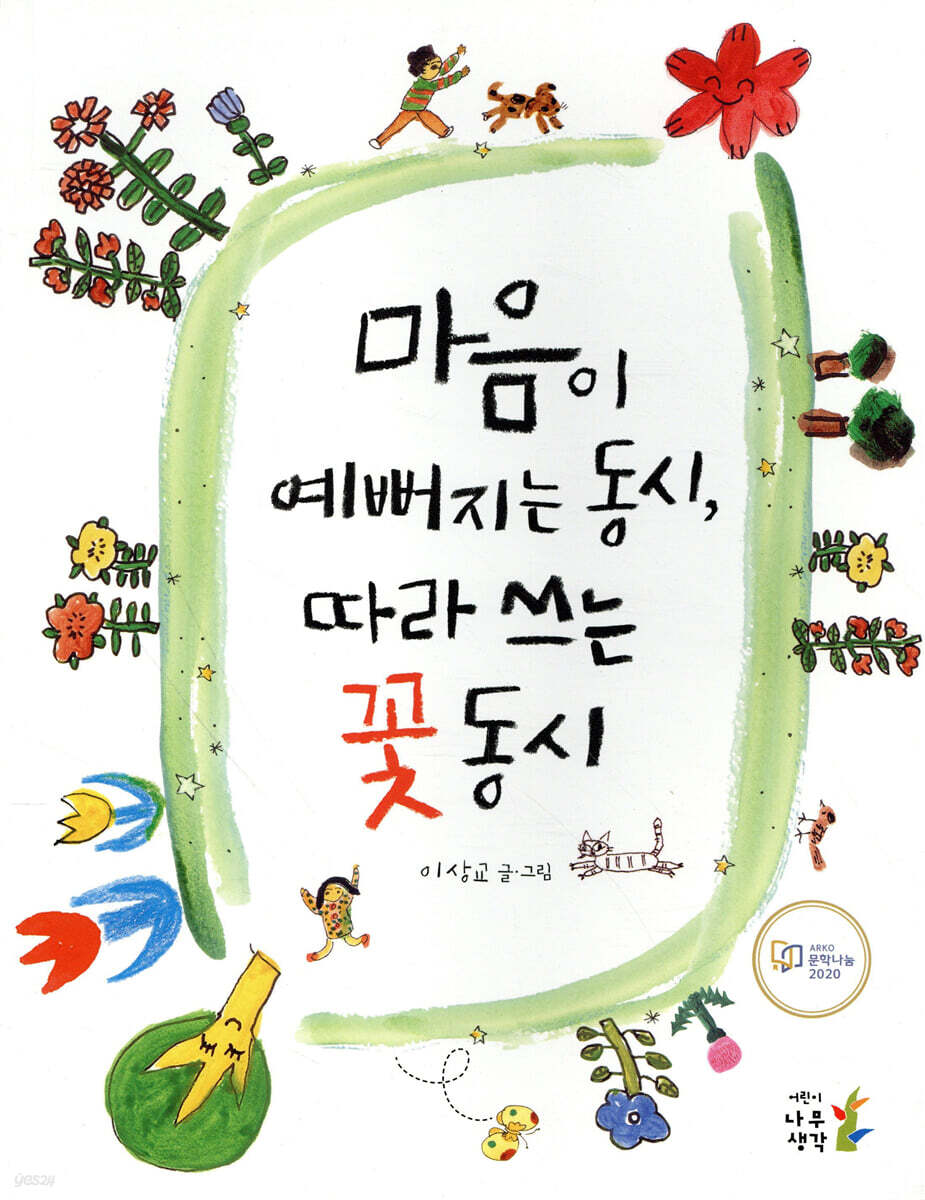 마음이
예뻐지는 동시,
따라 쓰는
꽃 동시
이상교 글·그림
ARKO
문학나눔
2020
어린이
나무
생각
yes24